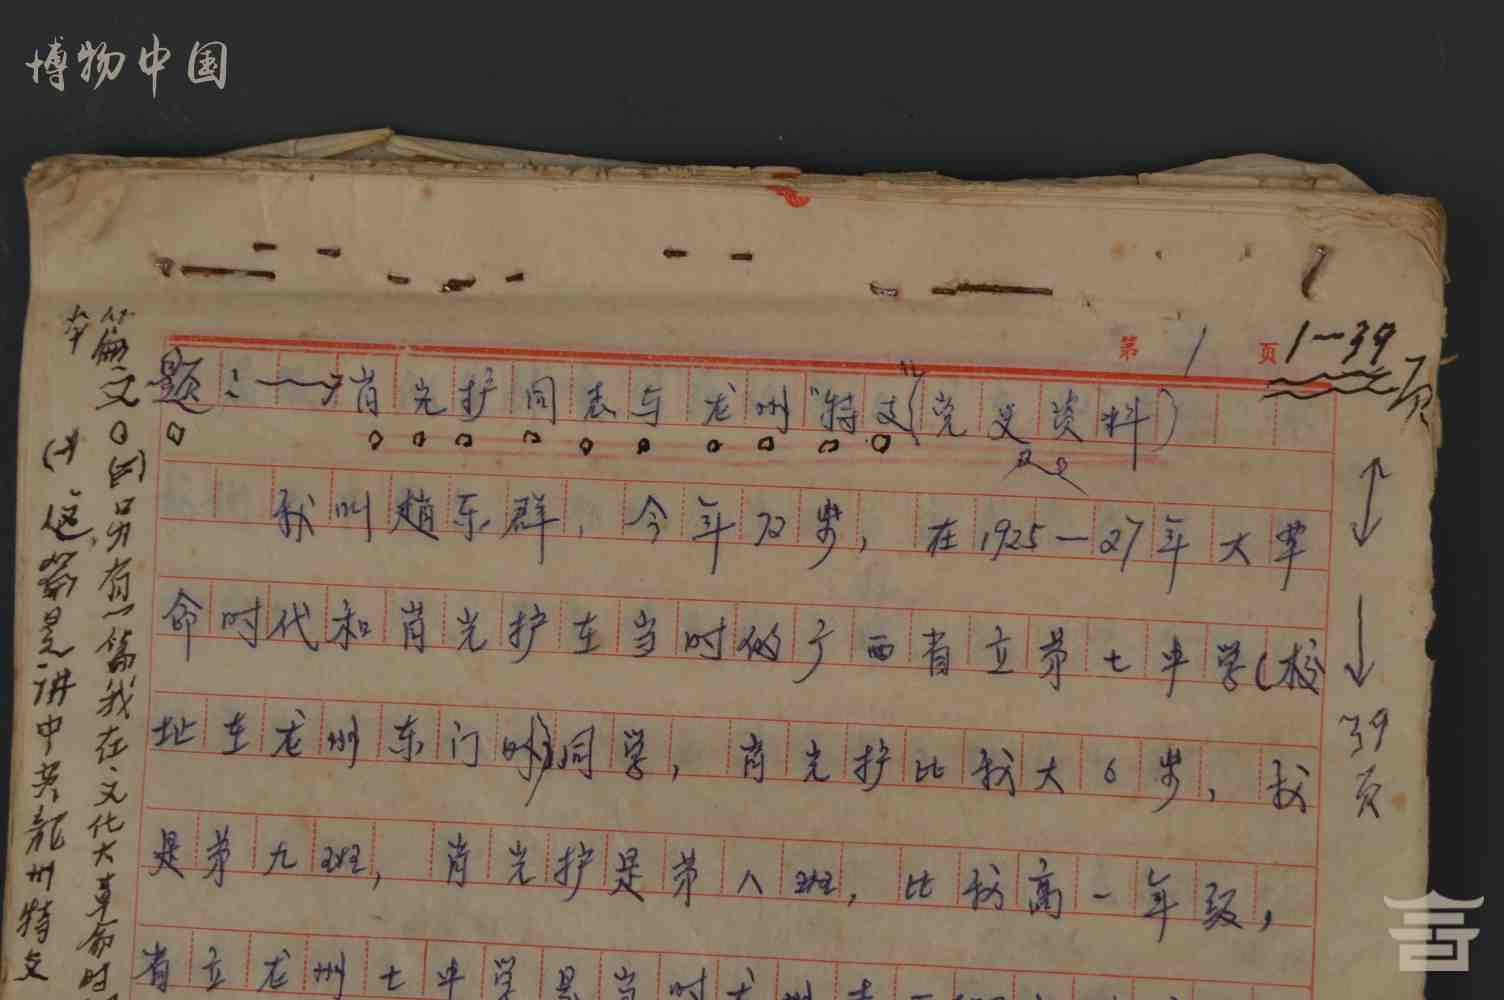 博物中国
第 1 页
1—39页
题：→肖光护同志与龙州“特支”（党史资料）
我叫赵东群，今年72岁，在1925—27年大革
命时代和肖光护在当时的广西省立第七中学（校
址在龙州东门外）同学，肖光护比我大6岁，我
是第九班，肖光护是第八班，比我高一年级，
省立龙州七中学是当时龙州
39页
本篇文
另有一篇我在文化大革命时
这篇是讲中共龙州特支